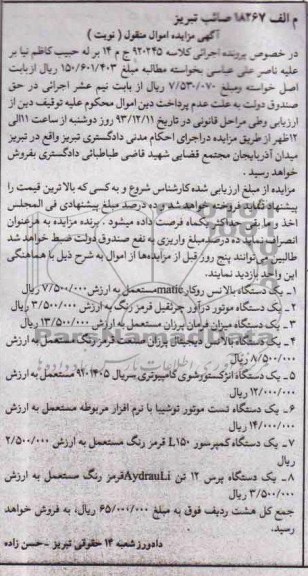 م الف ۱۸۲۶۷ صائب تبریز
آگهی مزایده اموال منقول ( نوبت )
در خصوص پرونده اجرائی کلاسه ۹۲۰۲۴۵ ج م ۱۴ بر له حبیب کاظم نیا بر
علیه ناصر علی عباسی بخواسته مطالبه مبلغ ۱۵۰/۶۰۱/۴۰۳ ریال ازبابت
اصل خواسته ومبلغ ۷/۵۳۰/۰۷۰ ریال از بابت نیم عشر اجرائی در حق
صندوق دولت به علت عدم پرداخت دین اموال محکوم علیه توقیف دین از
ارزیابی وطی مراحل قانونی در تاریخ ۹۳/۱۲/۱۱ روز دوشنبه از ساعت ۱۱الی
۱۲ظهر از طریق مزایده دراجرای احکام مدنی دادگستری تبریز واقع در تبریز
میدان آذربایجان مجتمع قضایی شهید قاضی طباطبائی دادگستری بفروش
خواهد رسید .
مزایده از مبلغ ارزیابی شده کارشناس شروع و به کسی که بالا ترین قیمت را
پیشنهاد نماید فروخته خواهد شد و ده درصد مبلغ پیشنهادی فی المجلس
اخذ و مابقی حداکثر یکماه فرصت داده میشود . برنده مزایده به هرعنوان
انصراف نماید ده درصدمبلغ واریزی به نفع صندوق دولت ضبط خواهد شد
طالبین می‌توانند پنج روز قبل از مزایده‌ها از اموال به شرح ذیل با هماهنگی
این واحد بازدید نمایند.
۱ـ یک دستگاه بالا نس روکار matic مستعمل به ارزش ۷/۵۰۰/۰۰۰ ریال
۲ـ یک دستگاه موتور درآور جرثقیل قرمز رنگ به ارزش ۳/۵۰۰/۰۰۰ ریال
۳ـ یک دستگاه میزان فرمان برزان مستعمل به ارزش ۱۳/۵۰۰/۰۰۰ ریال
۴ـ یک دستگاه بالا نس دیجیتال برزان تست قرمزرنگ مستعمل به ارزش
۸/۵۰۰/۰۰۰ ریال
۵ـ یک دستگاه انژکتورشوی کامپیوتری سریال ۹۲۰۱۴۰۵ مستعمل به ارزش
۱۲/۰۰۰/۰۰۰ ریال
۶ـ یک دستگاه تست موتور توشیبا با نرم افزار مربوطه مستعمل به ارزش
۱۴/۰۰۰/۰۰۰ ریال
۷ـ یک دستگاه کمپرسور L۱۵۰ قرمز رنگ مستعمل به ارزش ۲/۵۰۰/۰۰۰
ریال
۸ـ یک دستگاه پرس ۱۲ تن AydrauLi قرمز رنگ مستعمل به ارزش
۳/۵۰۰/۰۰۰ ریال
جمع کل هشت ردیف فوق به مبلغ ۶۵/۰۰۰/۰۰۰ ریال، به فروش خواهد
رسید.
دادورز شعبه ۱۴ حقوقی تبریز ـ حسن زاده